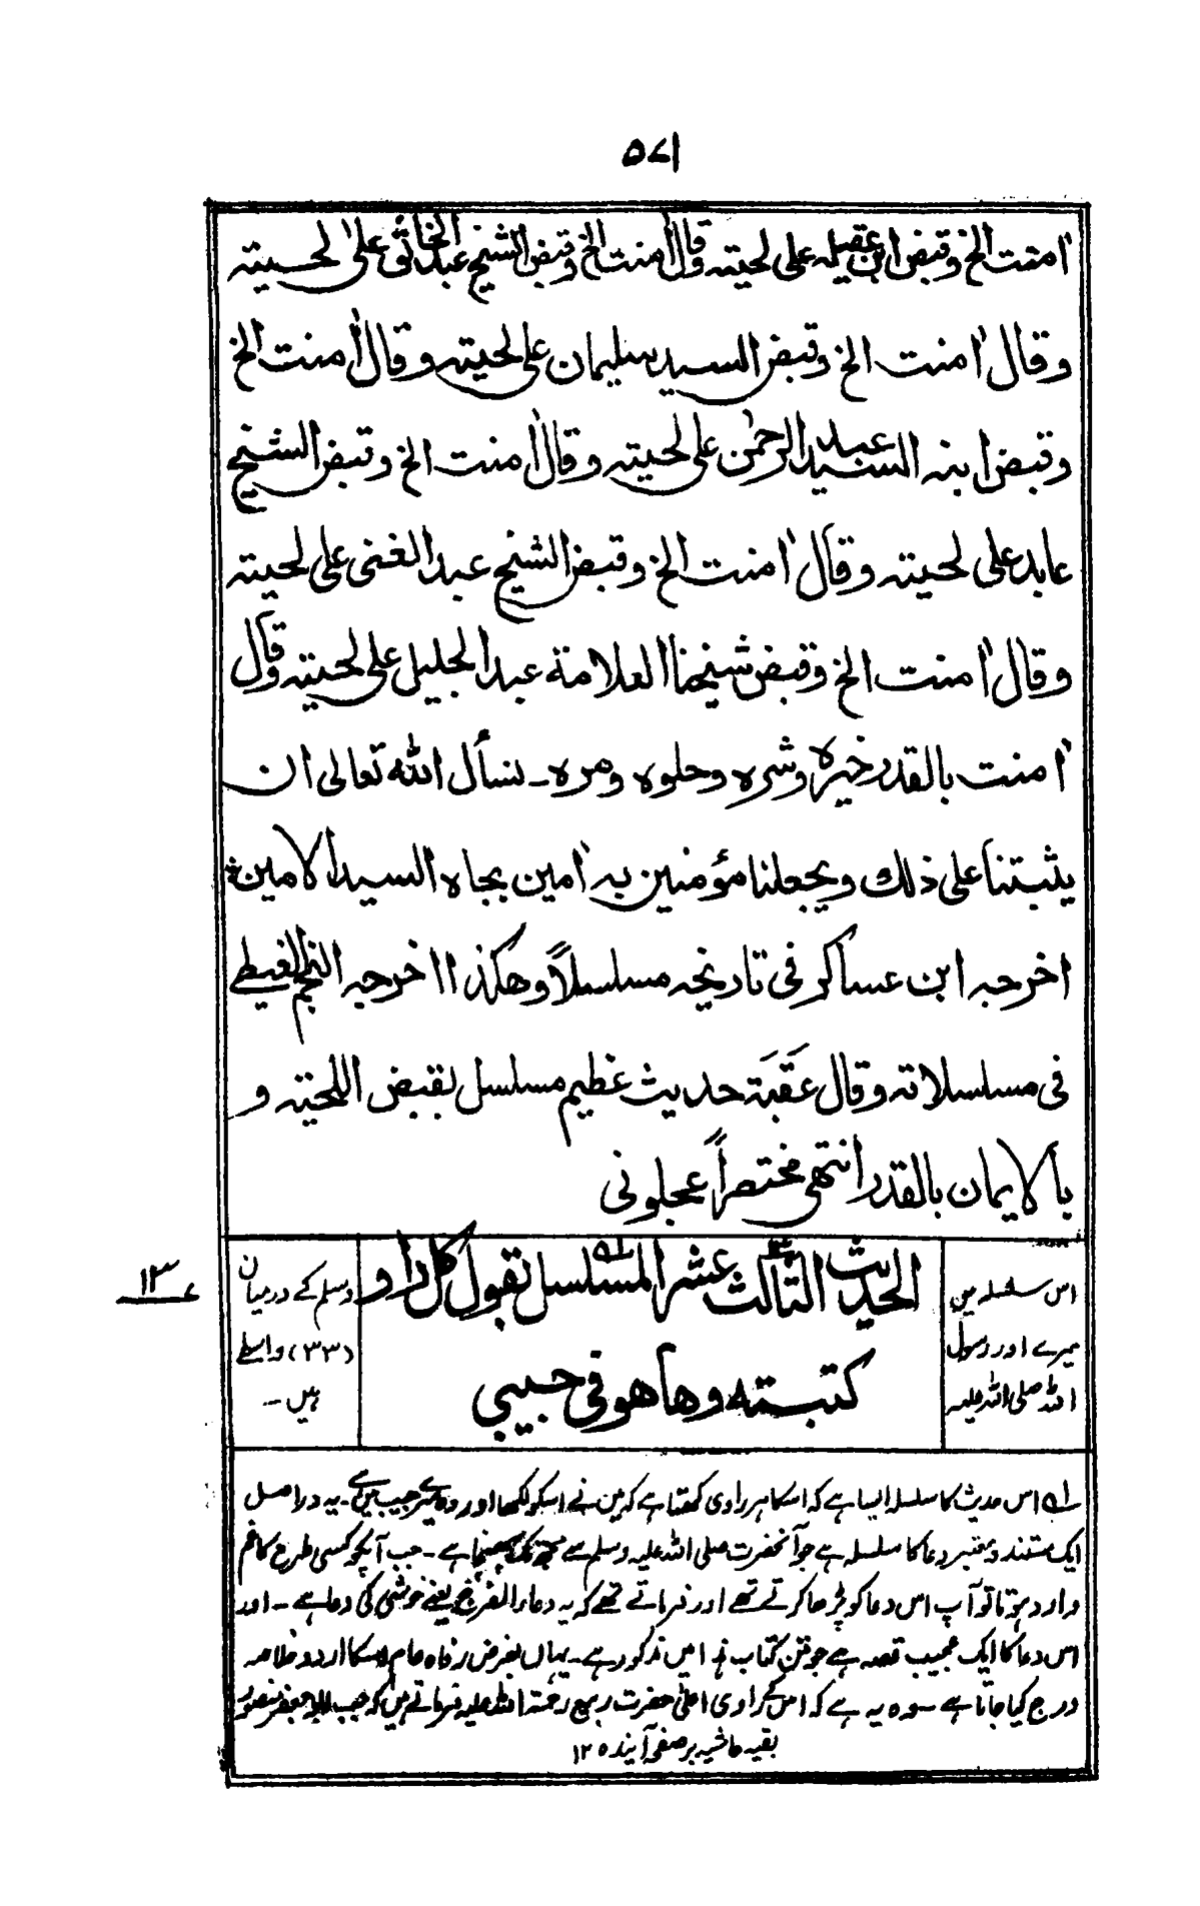 ۵۷۱
اٰمنت الخ وقبض ابن عقيله على لحيته وقال اٰمنت الخ وقبض الشيخ عبد الخالق على لحيته
وقال اٰمنت الخ وقبض السيد سليمان على لحيته وقال اٰمنت الخ
وقبض ابنه السيد عبد الرحمٰن على لحيته وقال اٰمنت الخ وقبض الشيخ
عابد على لحيته وقال اٰمنت الخ وقبض الشيخ عبد الغنى على لحيته
وقال اٰمنت الخ وقبض شيخنا العلامة عبد الجليل على لحيته وقال
اٰمنت بالقدر خيره وشره وحلوه ومره ـ نسأل الله تعالى ان
يثبتنا على ذلك ويجعلنا مؤمنين به اٰمين بجاه السيد الامين ؞
اخرجه ابن عساكر فى تاريخه مسلسلاً وهكذا اخرجه النجم الغيطے
فى مسلسلاته وقال عَقَبَة حديث عظيم مسلسل بقبض اللحيته و
بالايمان بالقدر انتهى مختصراً عجلونى
۱۳
اس سلسلہ میں
میرے اور رسول
اللہ صلی اللہ علیہ
الحديث الثالث عشر المسلسل بقول كل راو
كتبته وهاهو فى جيبي
وسلم کے درمیان
(۳۳) واسطے
ہیں ۔
لہ اس حدیث کا سلسلہ ایسا ہے کہ اسکا ہر راوی کہتا ہے کہ میں نے اسکو لکھا اور وہ میرے جیب میں ہے ۔ یہ دراصل
ایک مستند و معتبر دعا کا سلسلہ ہے جو آنحضرت صلی اللہ علیہ وسلم سے مجھ تک پہنچا ہے ۔ جب آپکو کسی طرح کا غم
وارد ہوتا تو آپ اس دعا کو پڑھا کرتے تھے اور فرماتے تھے کہ یہ دعاء الفرج یعنے خوشی کی دعا ہے ۔ اور
اس دعا کا ایک عجیب قصہ ہے جو متن کتاب ہٰذا میں مذکور ہے ۔ یہاں بغرض رفاہ عام اسکا اردو خلاصہ
درج کیا جاتا ہے سو وہ یہ ہے کہ اس کے راوی اعلیٰ حضرت ربیع رحمتہ اللہ علیہ فرماتے ہیں کہ جب ابو جعفر منصور
بقیہ حاشیہ بر صفحہ آیندہ ۱۲